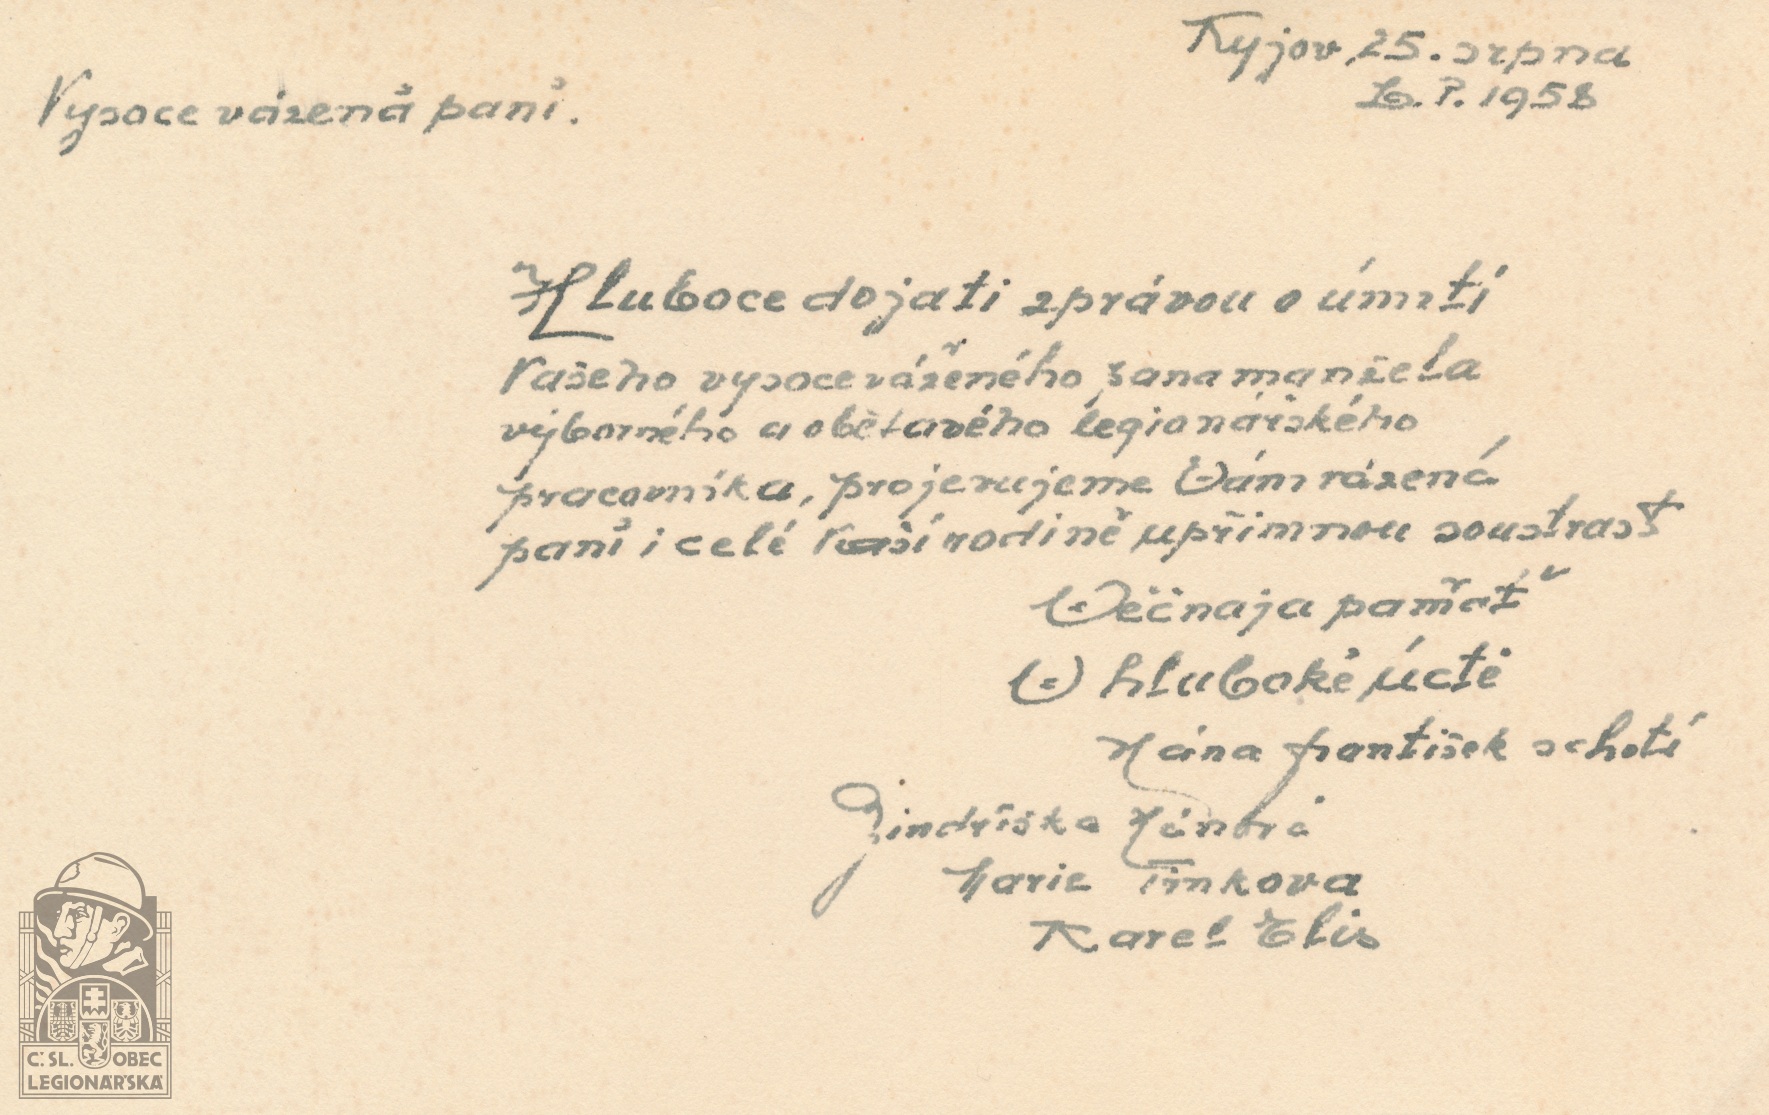 Kyjov, 25. srpna
L. P. 1958
Vysoce vázená paní.
Hluboce dojati zprávou o úmrtí
Vašeho vysoce váženého pana manžela
výborného a obětavého legionářského
pracovníka, projevujeme Vám vázená
paní i celé Vaší rodině upřímnou soustrast
Věčnaja pamať
V hluboké úctě
Kána František schotí
Jindřiška Kánová
Marie Šimkova
Karel Elis
Č. SL. OBEC
LEGIONÁŘSKÁ